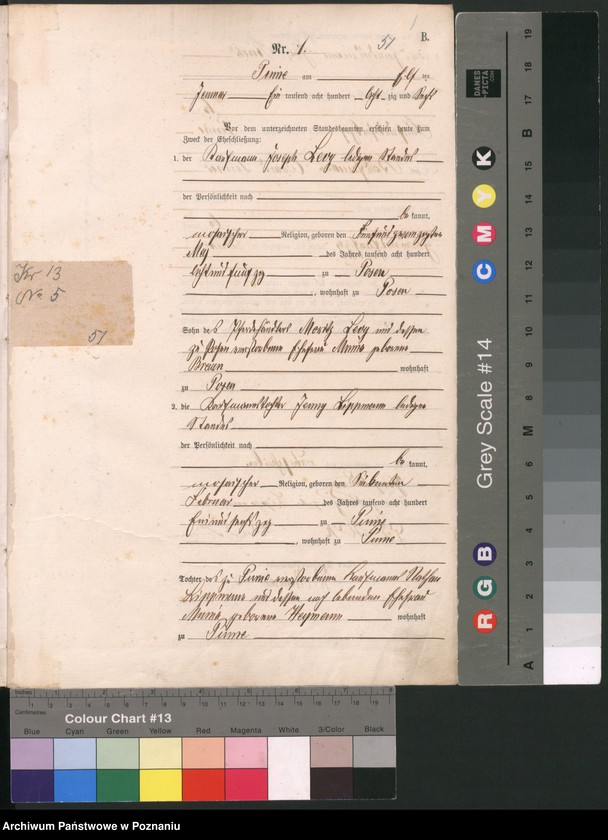 B.
51
Nr. 1.
Pinne am elf ten
Januar Ein tausend acht hundert Acht zig und Sechs
Vor dem unterzeichneten Standesbeamten erschien heute zum
Zweck der Eheschließung:
1. der Kaufmann Joseph Levy ledigen Standes
der Persönlichkeit nach
be kannt,
mosaischer Religion, geboren den Fünfundzwanzigsten
Mai des Jahres tausend acht hundert
zu Posen
, wohnhaft zu Posen
Sohn des Pferdehändlers Moritz Levy und dessen
zu Posen verstorbene Ehefrau Minna geborene
Braun wohnhaft
zu Posen
2. die Kaufmannstochter Jenny Lippmann ledigen
Standes
der Persönlichkeit nach
be kannt,
mosaischer Religion, geboren den Siebenten
Februar des Jahres tausend acht hundert
Einundsechzig zu Pinne
, wohnhaft zu Pinne
Tochter des zu Pinne verstorbenen Kaufmanns Nathan
Lippmann und dessen noch lebenden Ehefrau
geborene Heymann wohnhaft
zu Pinne
No 5
51
DANES
-PICTA
.COM
Grey Scale #14
A 1 2 3 4 5 6 M 8 9 10 11 12 13 14 15 B 17 18 19
R G B C M Y K
Inches
Centimetres
Colour Chart #13
Blue Cyan Green Yellow Red Magenta White 3/Color Black
Archiwum Państwowe w Poznaniu